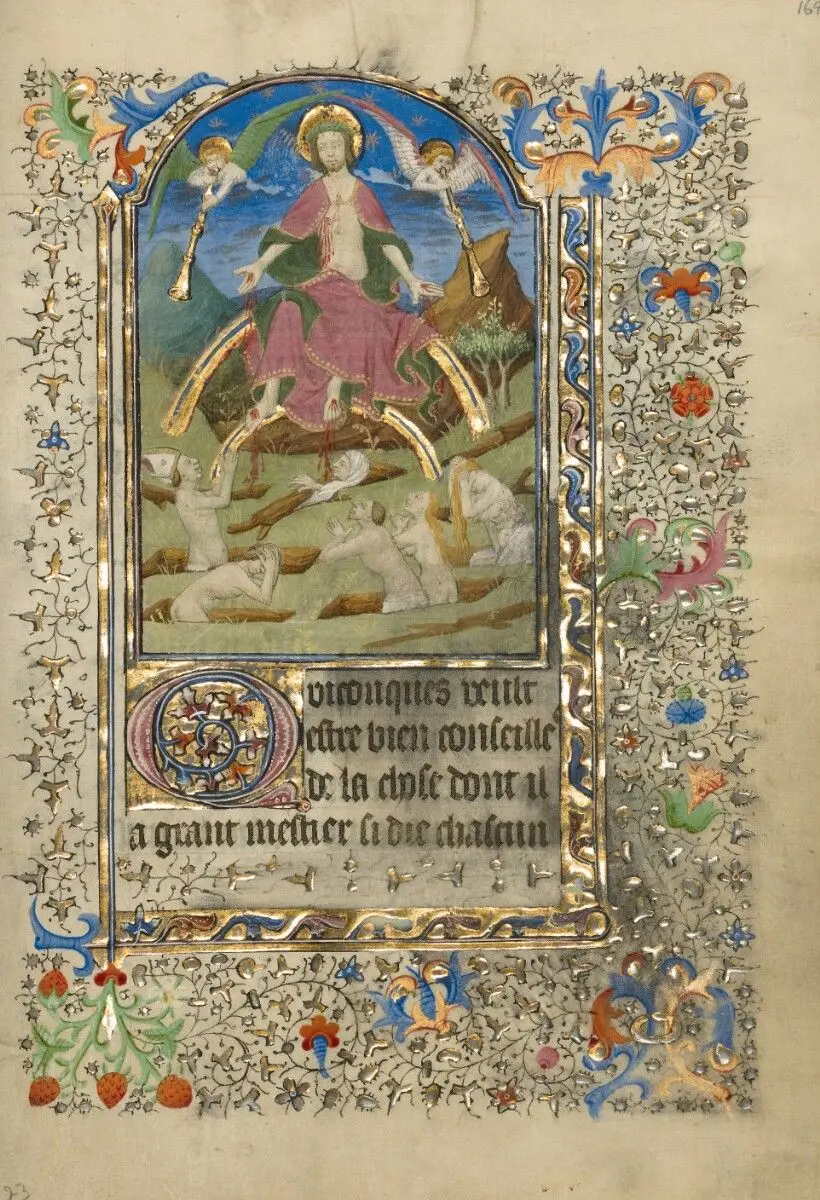 164
Quiconques veult
estre bien conseille
de la chose dont il
a grant mestier si die chascun